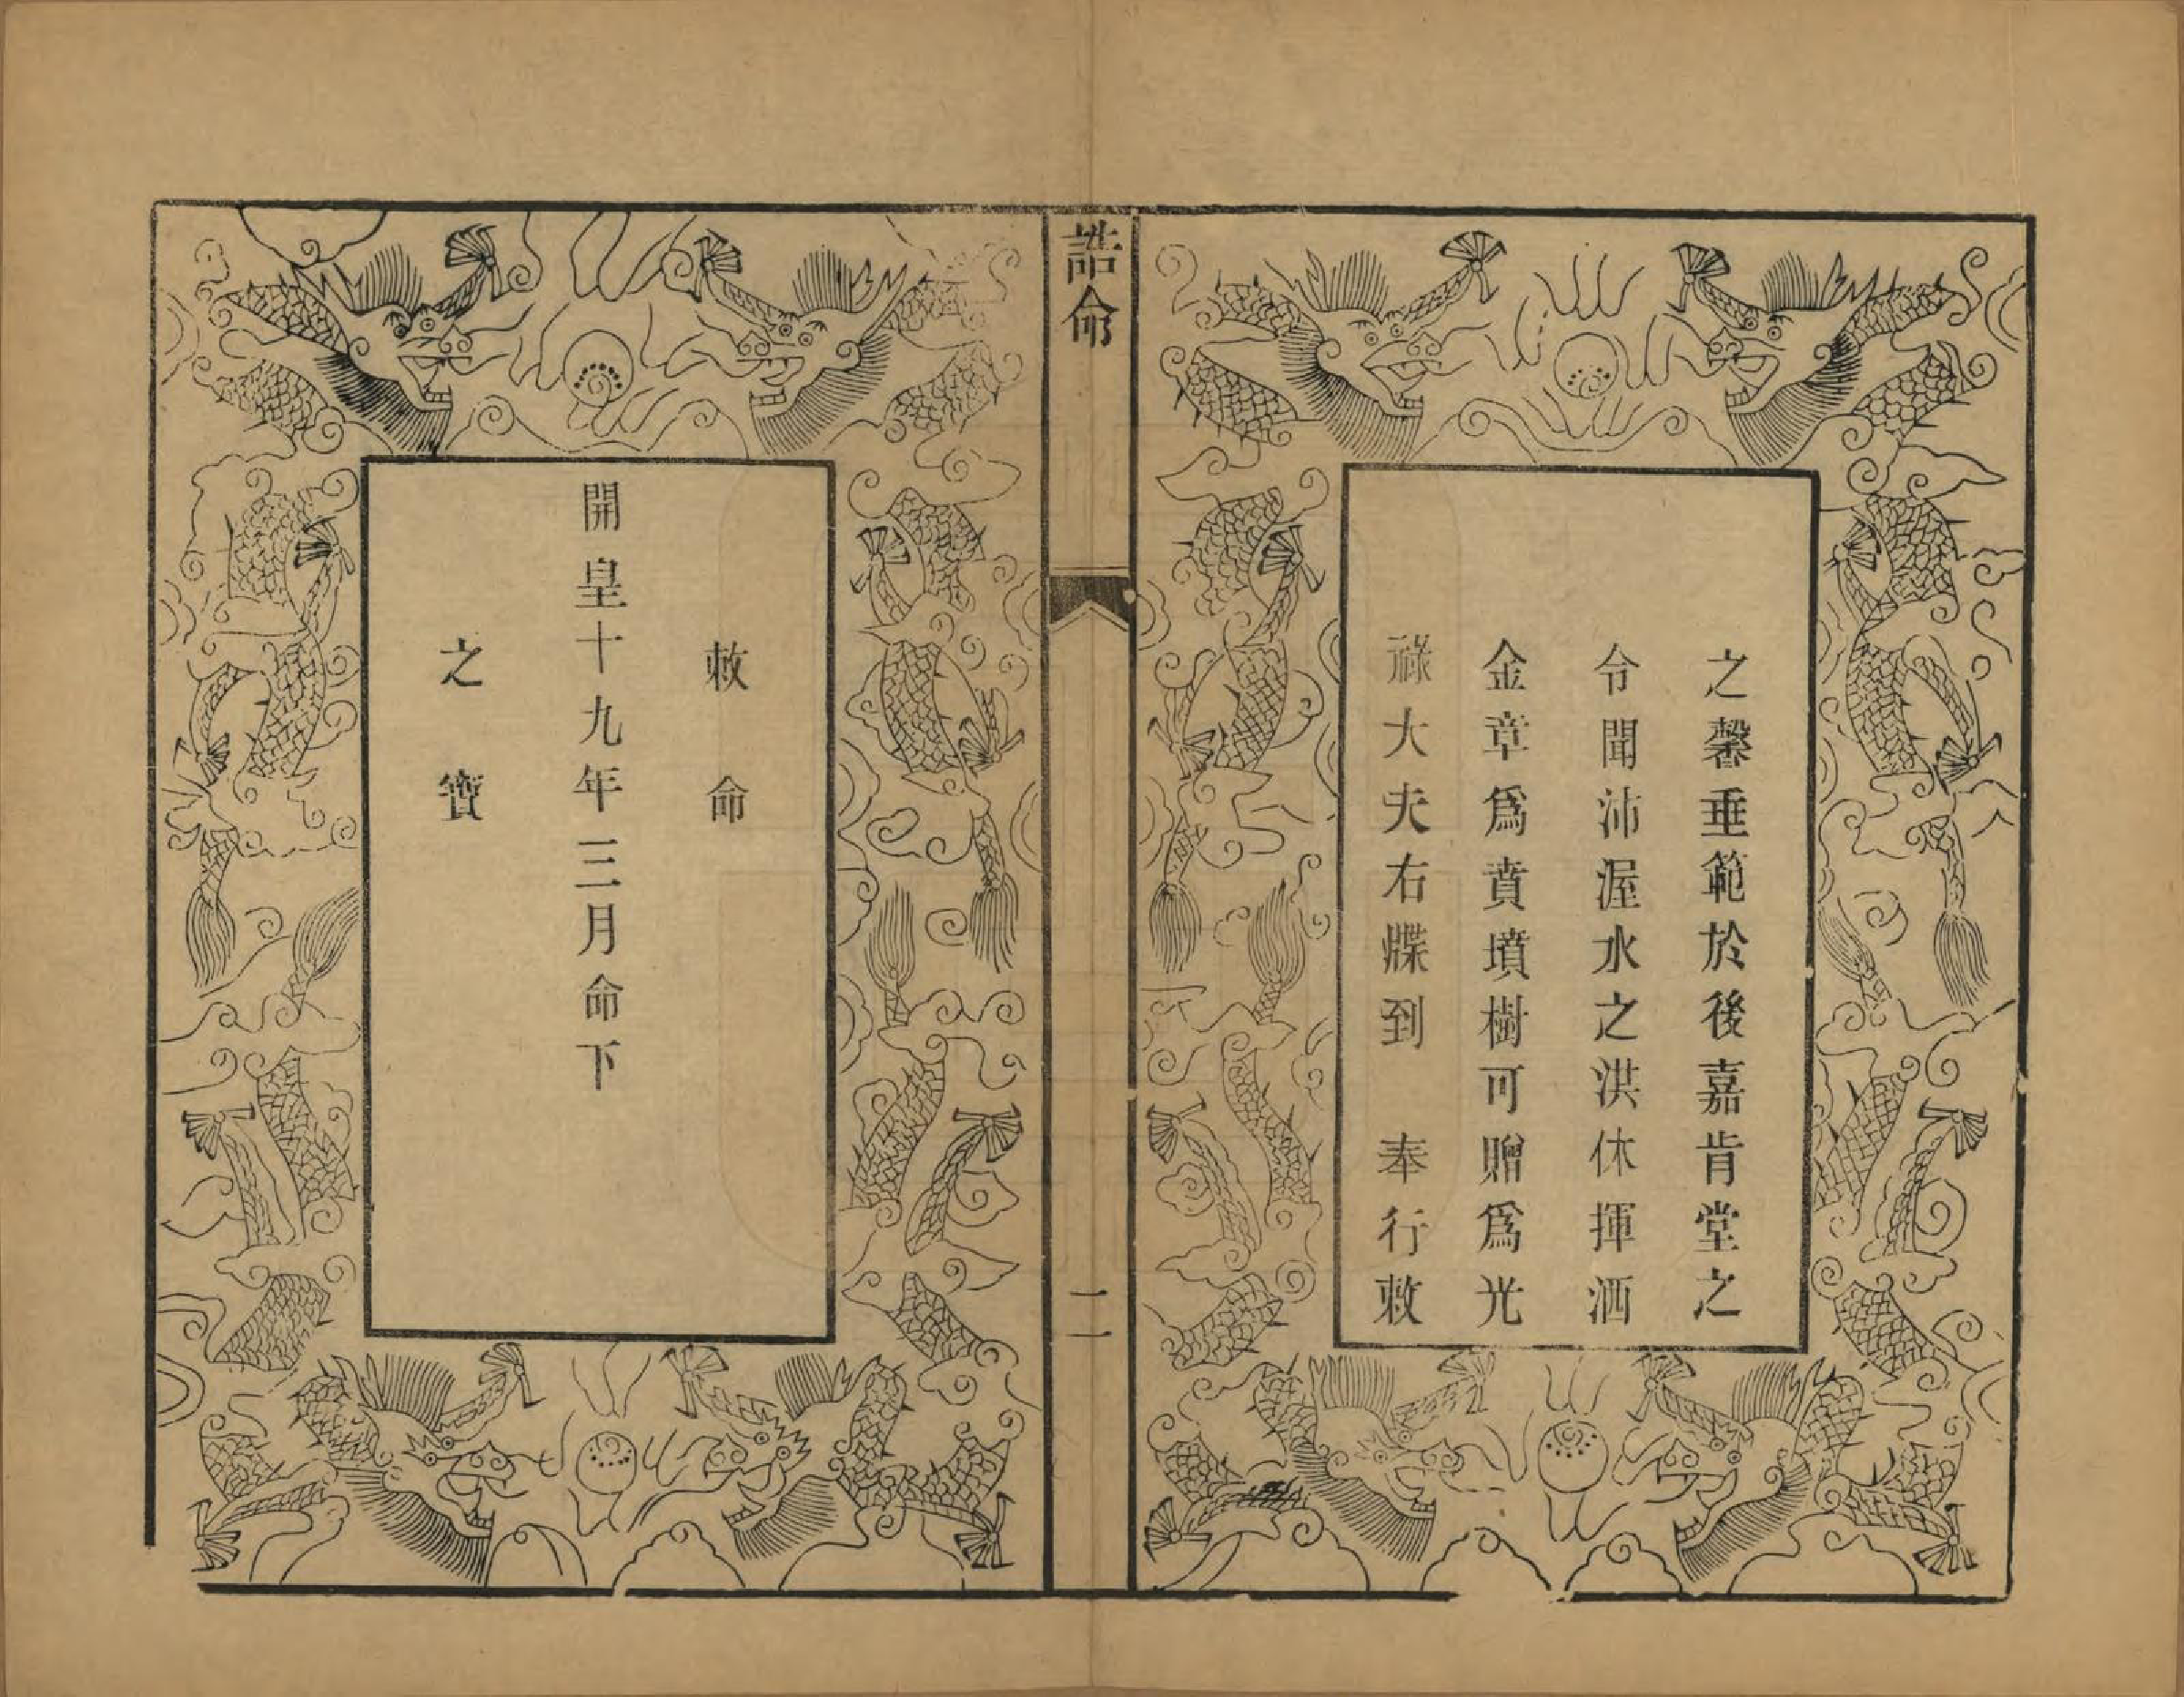 之馨垂範於後嘉肯堂之
令聞沛渥水之洪休揮洒
金章爲賁墳樹可贈爲光
祿大夫右牒到　奉行敕
誥命
二
敕命
開皇十九年三月命下
之寶